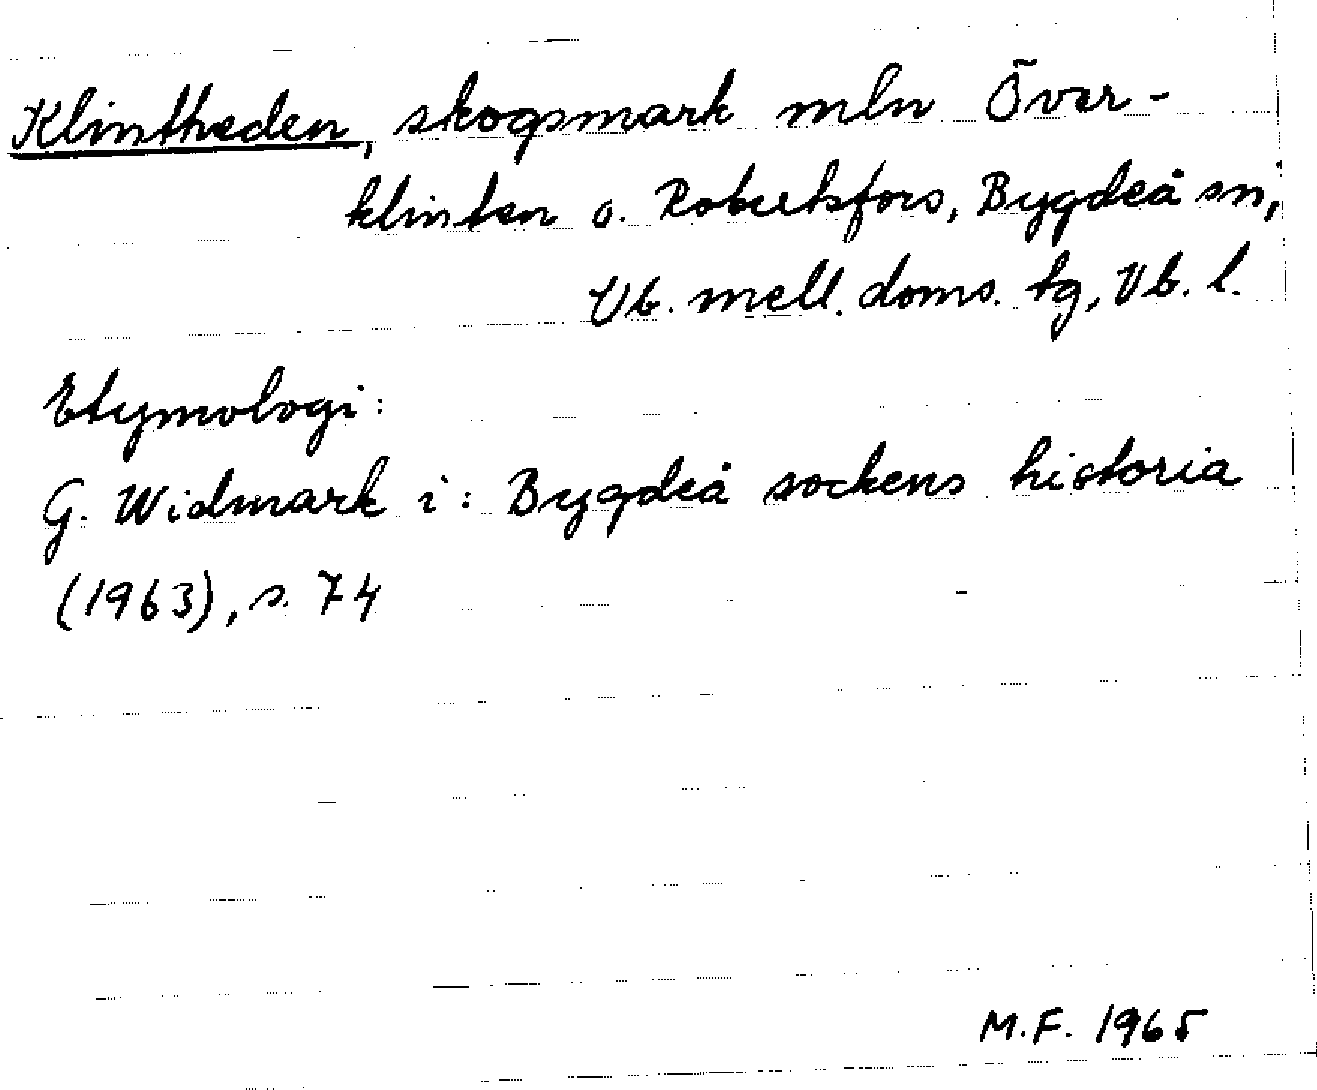 Klintheden, skogsmark mln Över-
klinten o. Robertsfors, Bygdeå sn,
Vb. mell. doms. tg, Vb. l.
Etymologi:
G. Widmark i: Bygdeå sockens historia
(1963), s. 74
M.F. 1965